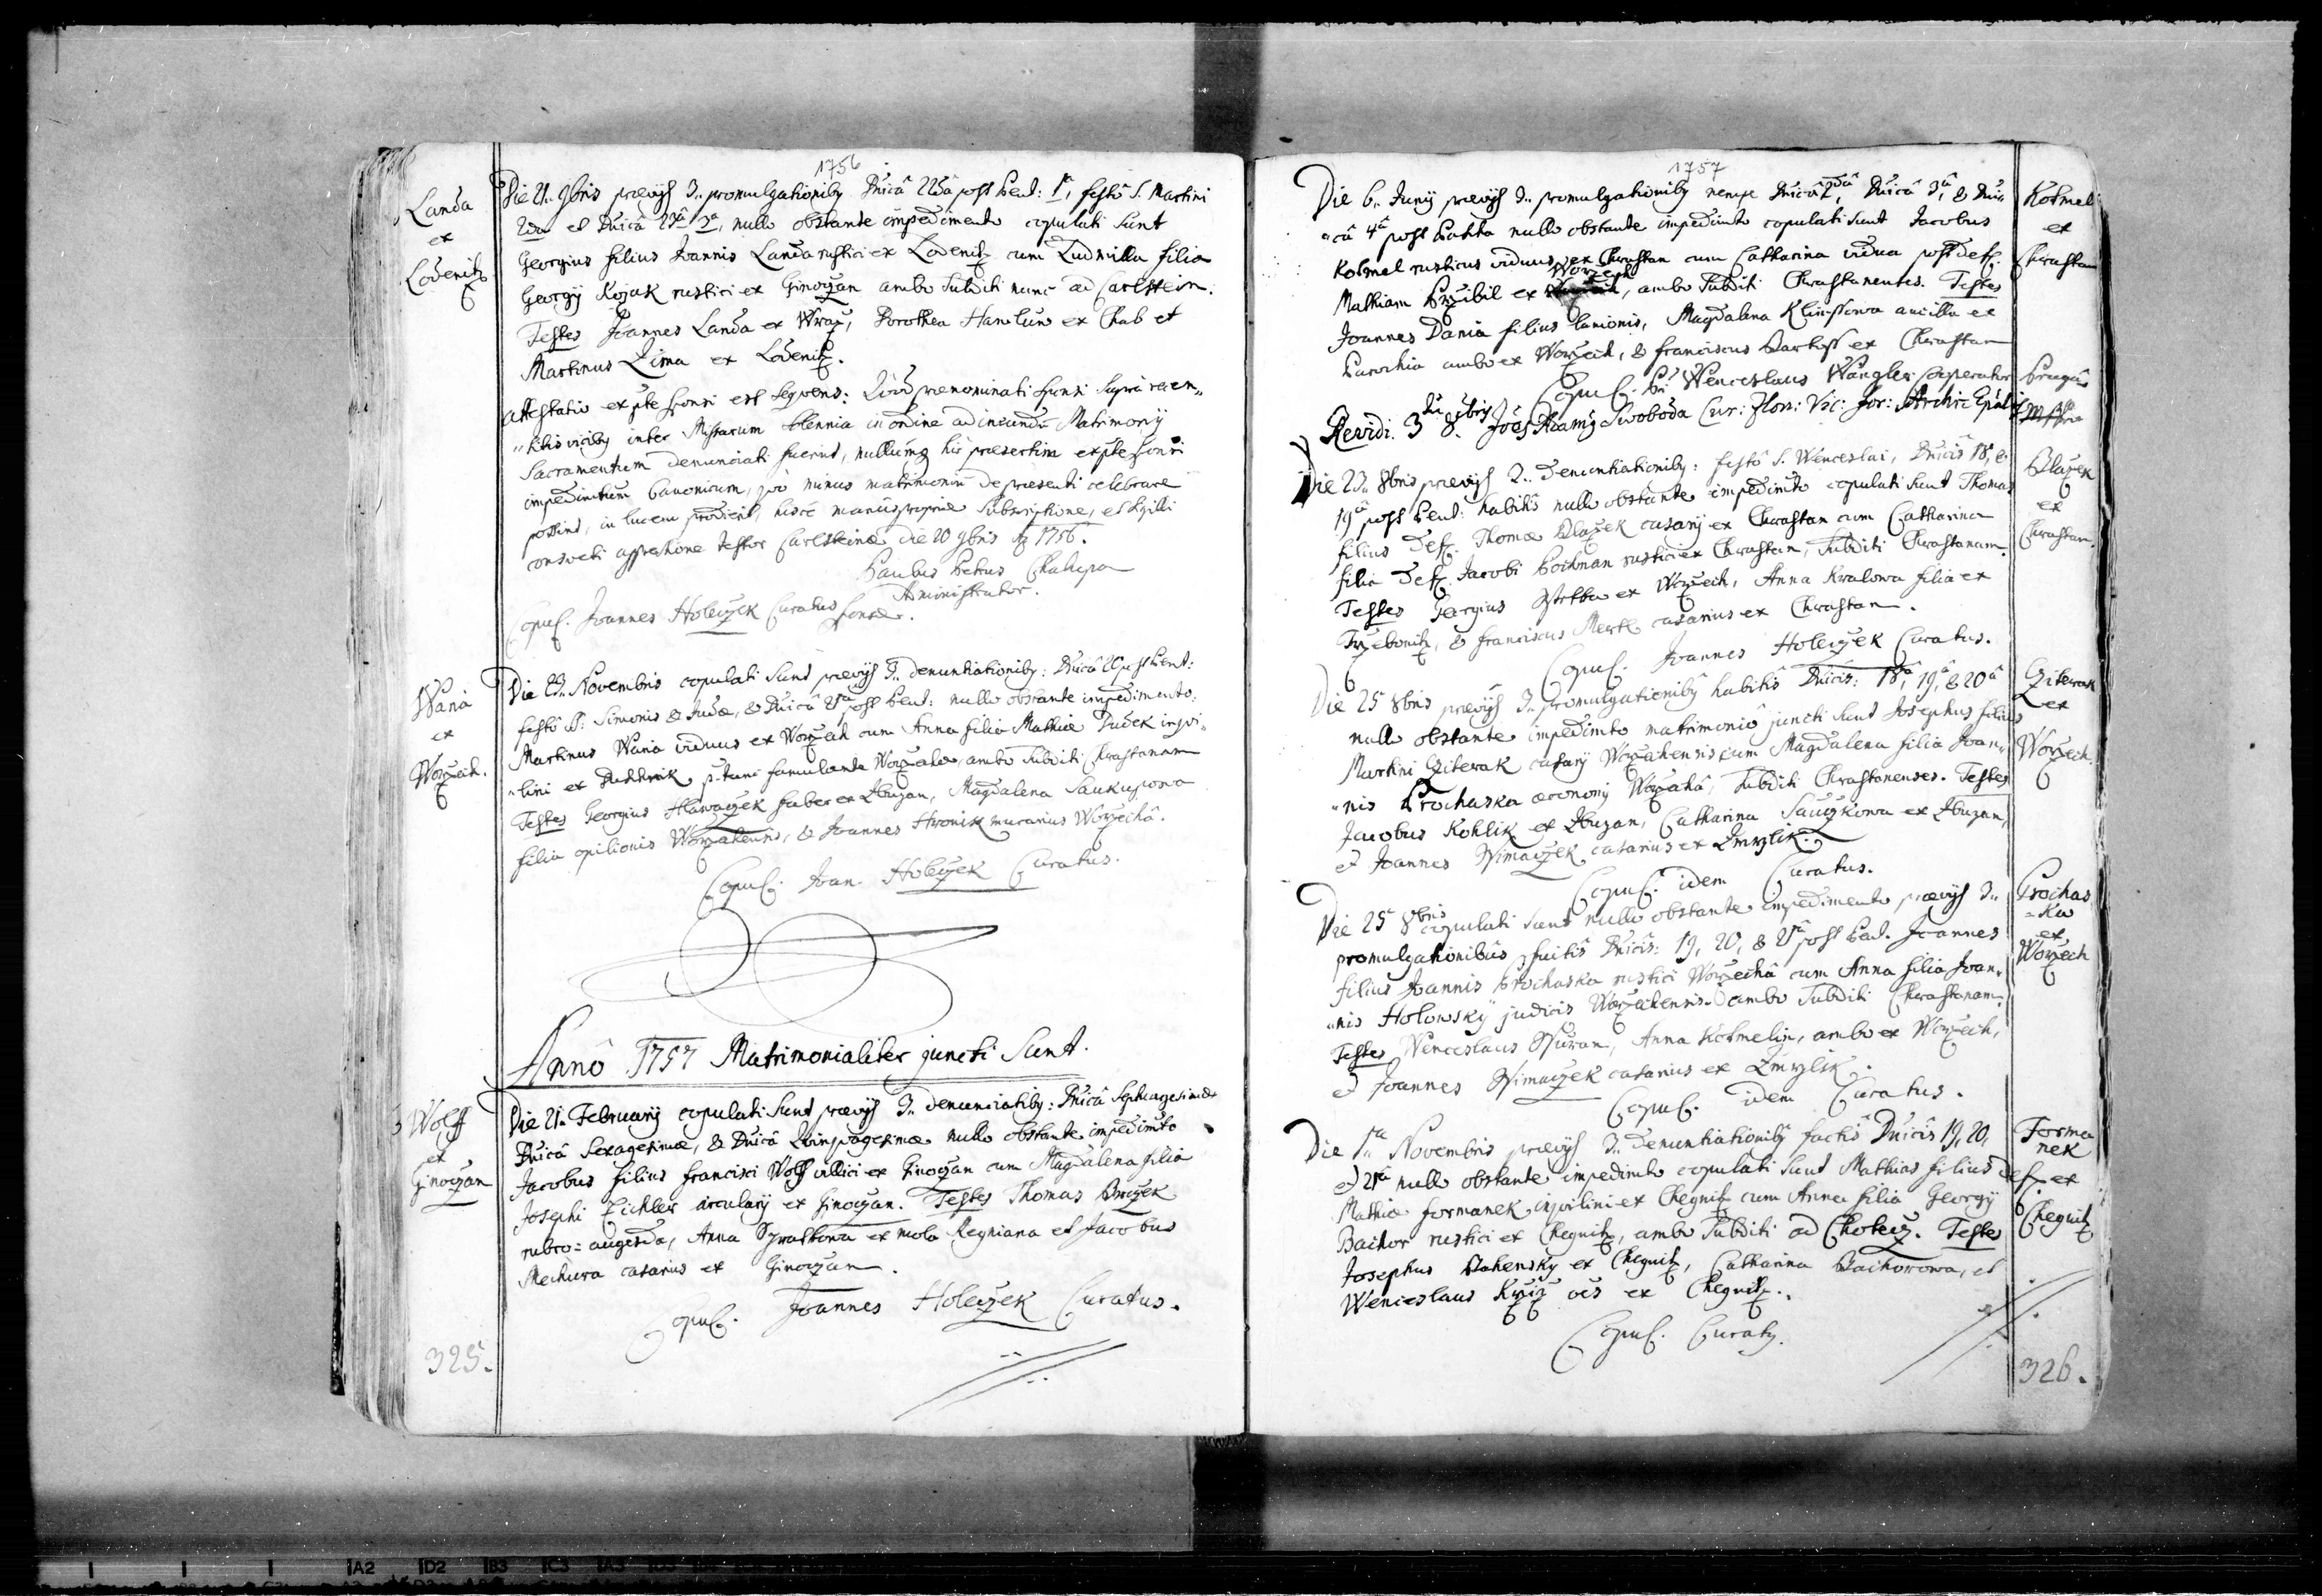 1756
Landa
ex
Lodenitz
Die 21. 9bris praevijs 3. promulgationiby Dnicâ 22dâ post Pent: 1a, festô S. Martini
2da et Dnicâ 23â 3a, nullo obstante impedimento copulati sunt
Georgius filius Joannis Landa rustici ex Lodenitz cum Ludmilla filia
Georgij Kojak rustici ex Ginoczan ambo subditi nunc ad Carlstein.
Testes Joannes Landa ex Wraz, Dorothea Hawlun ex Chab et
Martinus Zima ex Lodenitz.
Attestatio ex pte sponsi est sequens: Quod praenominati sponsi supra recen„
„sitis vicibq inter Missarum solennia in ordine ad ineundu Matrimonij
Sacramentum denunciati fuerint, nullumq hic praesertim ex pte sponsi
impedimtum Canonicum, quo minus matrimoniu de praesenti celebrare
possint, in lucem prodierit, hisce manus propriae subscriptione, et sigilli
consveti appressione testor Carlsteinae die 20 9bris Ao 1756.
Paulus Petrus Chalupa
Administrator.
Copul. Joannes Holeczek Curatus sponsae.
Wania
ex
Worzech.
Die 23. Novembris copulati sunt praevijs 3. denuntiationiby: Dnicâ 20 post Pent:
festô SS: Simonis & Judae, & Dnicâ 21â post Pent: nullo obstante impedimento
Martinus Wania viduus ex Worzech cum Anna filia Mathiae Dudek inqvi„
„lini ex Duschnik p: tunc famulante Worzechae, ambo subditi Chrastanam
Testes Georgius Hlawaczek faber ex Zbuzan, Magdalena Saukupowa
filia opilionis Worzechensis, & Joannes Hronik murarius Worzechâ.
Copul. Joan. Holeczek Curatus.
Annô 1757 Matrimonialiter juncti sunt.
3 Wolff
ex
Ginoczan
Die 21. Februarij copulati sunt praevijs 3. denunciatiby: Dnicâ Septuagesimae
Dnicâ Sexagesimae, & Dnicâ Quinquagesimae nullo obstante impedimto
Jacobus filius Francisci Wolff villici ex Ginoczan cum Magdalena filia
Josephi Eichler arcularij ex Ginoczan. Testes Thomas
rubro=augezda, Anna ex mola Regniana et Jacobus
Mechura casarius ex Ginoczan.
Copul. Joannes Holeczek Curatus.
325.
1757
Die 6. Junij praevijs 3. promulgationiby nempe Dnicâ 2dâ, Dnicâ 3â, & Dni„
„câ 4â post Pascha nullo obstante impedimto copulati sunt Jacobus
Kotmel rusticus viduus ex Chrastan cum Catharina vidua post def.
Mathiam Przibil ex Worzech, ambo subditi Chrastanenses. Testes
Joannes Dania filius lanionis, Magdalena Klimssowa ancilla ex
Parochia ambo ex Worzech, & Franciscus Bartoss ex Chrastan
Copul. Pr. Wenceslaus Wangler Cooperator
Revidi. 3 8bris Joes Adamq Swoboda Cur: Vic: For: Archi Epalis
Kotmel
ex
Chrastan
Die 23. 8bris praevijs 3. denuntiationiby: festô S. Wenceslai, Dnicis 18, &
19â post Pent: habitis nullo obstante impedimto copulati sunt Thomas
filius def. Thomae Blazek casarij ex Chrastan cum Catharina
filia def. Jacobi Pochman rustici ex Chrastan, subditi Chrastanam.
Testes Georgius ex Worzech, Anna Kralowa filia ex
Trzebonitz, & Franciscus Merte casarius ex Chrastan.
Copul. Joannes Holeczek Curatus.
Blazek
ex
Chrastan.
Die 25 8bris praevijs 3. promulgationiby habitis Dnicis: 18â, 19â, & 20â
nullo obstante impedimto matrimoniô juncti sunt Josephus filius
Martini Cziterak casarij Worzechensis cum Magdalena filia Joan„
„nis Prochaska oeconomij Worzechâ, subditi Chrastanenses. Testes
Jacobus Kohlik ex Zbuzan, Catharina Sauczkowa ex Zbuzan,
et Joannes Ssimaczek casarius ex Zmrzlik.
Copul. idem Curatus.
Cziterak
ex
Worzech.
Die 25 8bris copulati sunt nullo obstante impedimento praevijs 3.
promulgationibus factis Dnicis: 19, 20, & 21â post Pent. Joannes
filius Joannis Prochaska rustici Worzechâ cum Anna filia Joan„
„nis Holowsky judicis Worzechensis. ambo subditi Chrastanam.
Testes Wenceslaus Ssuran, Anna Kotmelin, ambo ex Worzech,
et Joannes Ssimaczek casarius ex Zmrzlik.
Copul. idem Curatus.
Prochas
=ka
ex
Worzech
Die 1. Novembris praevijs 3. denuntiationiby factis Dnicis 19, 20,
et 21â nullo obstante impedimto copulati sunt Mathias filius def.
Mathiae Formanek inqvilini ex Chegnitz cum Anna filia Georgij
Bachor rustici ex Chegnitz, ambo subditi ad Chotecz. Testes
Josephus Bahensky ex Chegnitz, Catharina Bachorowa, et
Wenceslaus Krziz oes ex Chegnitz.
Copul. Curatq.
Forma
nek
ex
Chegnitz
326.